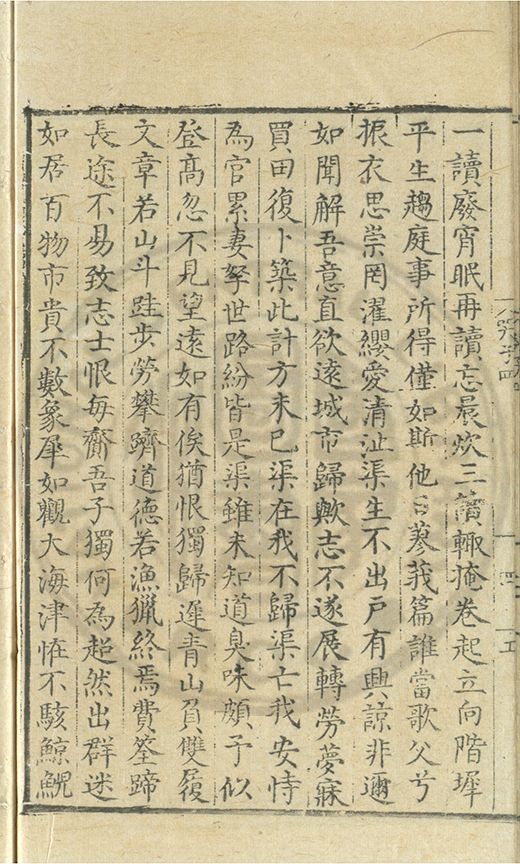 一讀廢宵眠再讀忘晨炊三讀輙掩卷起立向階墀
平生趨庭事所得僅如斯他日蓼莪篇誰當歌父兮
振衣思崇罔濯纓愛清沚渠生不出戶有興諒非邇
如聞解吾意直欲遠城市歸歟志不遂展轉勞夢寐
買田復卜築此計方未已渠在我不歸渠亡我安恃
為官累妻孥世路紛皆是渠雖未知道臭味頗予似
登高忽不見望遠如有俟猶恨獨歸遲青山負雙履
文章若山斗跬步勞攀躋道德若漁獵終焉費筌蹄
長途不易致志士恨每齎吾子獨何為超然出群迷
如居百物市貴不數象犀如觀大海津恠不駭鯨鯢